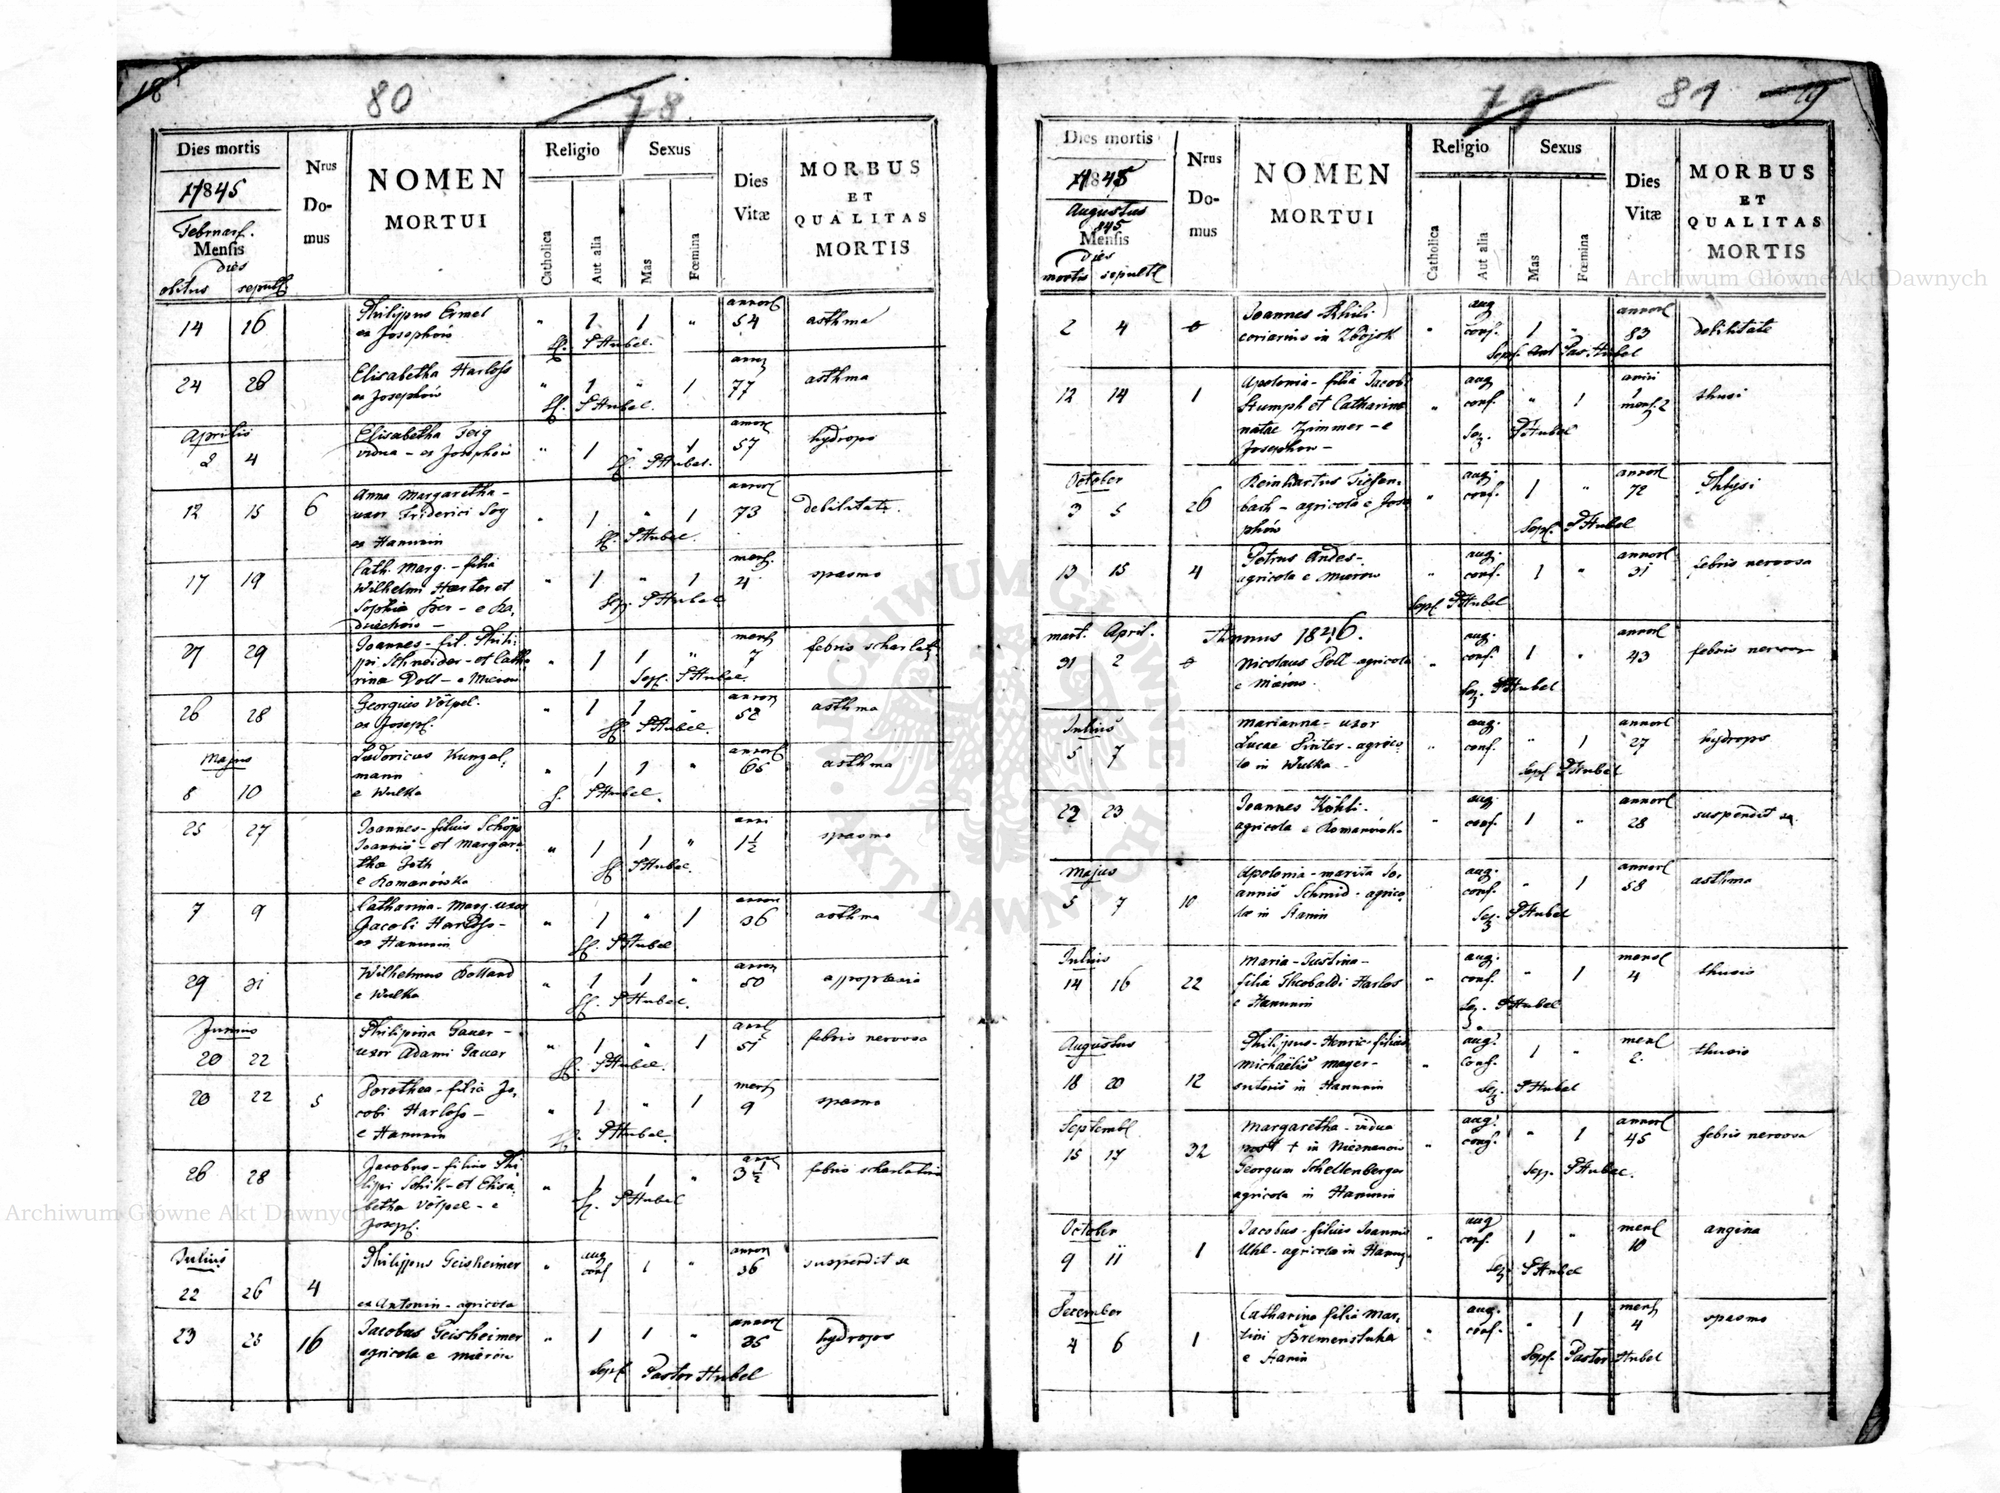 18
80
78
Dies mortis
1845
Februar.
Mensis
dies
obitus sepult.
Nrus
Do-
mus
NOMEN
MORTUI
Religio
Catholica
Aut alia
Sexus
Mas
Fœmina
Dies
Vitæ
MORBUS
ET
QUALITAS
MORTIS
14 16 Philippus Ermel " 1 1 " annor 54 asthma
ex Josephów
S. Hubel.
24 26 Elisabetha Harloß " 1 " 1 ann 77 asthma
ex Josephów
S. Hubel.
Aprilis
2 4 Elisabetha Feig " 1 " 1 annor 57 hydrops
vidua - ex Josephów
S. Hubel.
12 15 6 Anna Margaretha - " 1 " 1 annor 73 debilitate.
uxor Friderici
ex Hanunin
S. Hubel.
17 19 Cath. Marg. - filia " 1 " 1 mens. 4 spasmo
Wilhelmi Harter et
Sophiæ - e Ra,
dziechow -
P Hubel
27 29 Joannes - fil. Phili, " 1 1 " mens 7 febris scharlat
ppi Schneider - et Catha
rinæ Doll - e Mierow
Sep. P Hubel.
26 28 Georgius Völpel. " 1 1 " annor 52 asthma
ex Joseph.
P Hubel.
Majus
8 10 Ludovicus Kunzel, " 1 1 " annor 65 asthma
mann
e Wulka
P Hubel.
25 27 Joannes - filius Schöps " 1 1 " anni 1½ spasmo
Joannis - et Margare
tha Joth
e Romanówka
P Hubel.
7 9 Catharina - Marg. uxor " 1 " 1 annor 36 asthma
Jacobi Harloß -
ex Hanunin
P Hubel
29 31 Wilhelmus Bolland " 1 1 " annor 50
e Wulka
P Hubel.
Junius
20 22 Philipina Gauer - " 1 " 1 ann 51 febris nervosa
uxor Adami Gauer
P Hubel.
20 22 5 Dorothea - filia Ja, " 1 " 1 mens 9 spasmo
cobi Harloß -
e Hanunin
P Hubel.
26 28 Jacobus - filius Phi " 1 1 " ann 3½ febris scharlatina
lippi Schik - et Elisa,
betha Völpel - e
Joseph.
P Hubel
Julius
22 26 4 Philippus Geisheimer " aug conf 1 " annor 36 suspendit se
ex Antonin - agricola
23 25 16 Jacobus Geisheimer " 1 1 " annor 35 hydrops
agricola e Mierów
Sep. Pastor Hubel
79
81
19
Dies mortis
1845
Augustus
845
Mensis
Dies
mortis sepult
Nrus
Do-
mus
NOMEN
MORTUI
Religio
Catholica
Aut alia
Sexus
Mas
Fœmina
Dies
Vitæ
MORBUS
ET
QUALITAS
MORTIS
2 4 Joannes Rhili " aug conf. 1 " annor 83 debilitate
coriarius in Zbojsk
Hubel
12 14 1 Apolonia - filia Jacobi " aug conf. " 1 anni 1 mens. 2 thusi
Stumph et Catharina
natae Zimmer - e
Josephow -
P Hubel
October
3 5 26 Reinhartus Tiefen, " aug. conf. 1 " annor 72 Phtysi
bach - agricola e Jose
phów
Sep. P Hubel
13 15 4 Petrus Andes - " aug. conf. 1 " annor 31 febris nervosa
agricola e Mierow
Sep. P Hubel
mart. April. Annus 1846.
31 2 Nicolaus Poll agricola " aug. conf. 1 " annor 43 febris nervosa
e Mierow.
P Hubel
Julius
5 7 Marianna - uxor " aug. conf. " 1 annor 27 hydrops
Lucae Pinter - agrico,
lae in Wulka -
Sep. P Hubel
22 23 Joannes Köhli - " aug. conf. 1 " annor 28 suspendit se.
agricola e Romanówka
Majus
5 7 10 Apolonia - marita Jo, " aug. conf. " 1 annor 58 asthma
annis Schmid - agrico,
lae in Stanin
P Hubel
Julius
14 16 22 Maria - Justina - " aug. conf. " 1 mens 4 thusis
filia Theobaldi Harlos
e Hanunin
P Hubel
Augustus
18 20 12 Philipus - Henric - filius " aug. conf. 1 " mens 2. thusis
Michaëlis Mayer -
sutoris in Hanunin
P Hubel
Septembr.
15 17 32 Margaretha - vidua " aug. conf. " 1 annor 45 febris nervosa
post † in Nieznanow
Georgum Schellenberger
agricola in Hanunin
Sep. P Hubel.
October
9 11 1 Jacobus - filius Joannis " aug conf. 1 " mens 10 angina
Uhl - agricola in Hanun
P Hubel
December
4 6 1 Catharina filia Mar, " aug. conf. " 1 mens 4 spasmo
tini Bremenstuhl
e Stanin
Sep. Pastor Hubel
Archiwum Główne Akt Dawnych
Archiwum Główne Akt Dawnych
ARCHIWUM GŁÓWNE AKT DAWNYCH